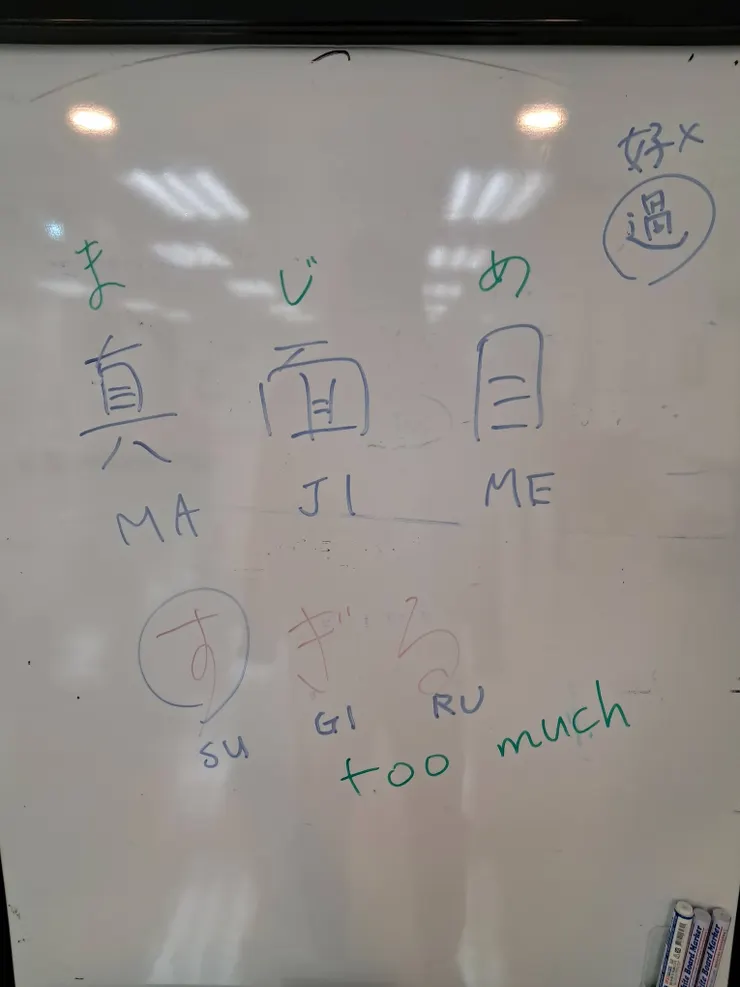 好×
過
まじめ
真面目
MA JI ME
すぎる
SU GI RU
too much
White Board Marker